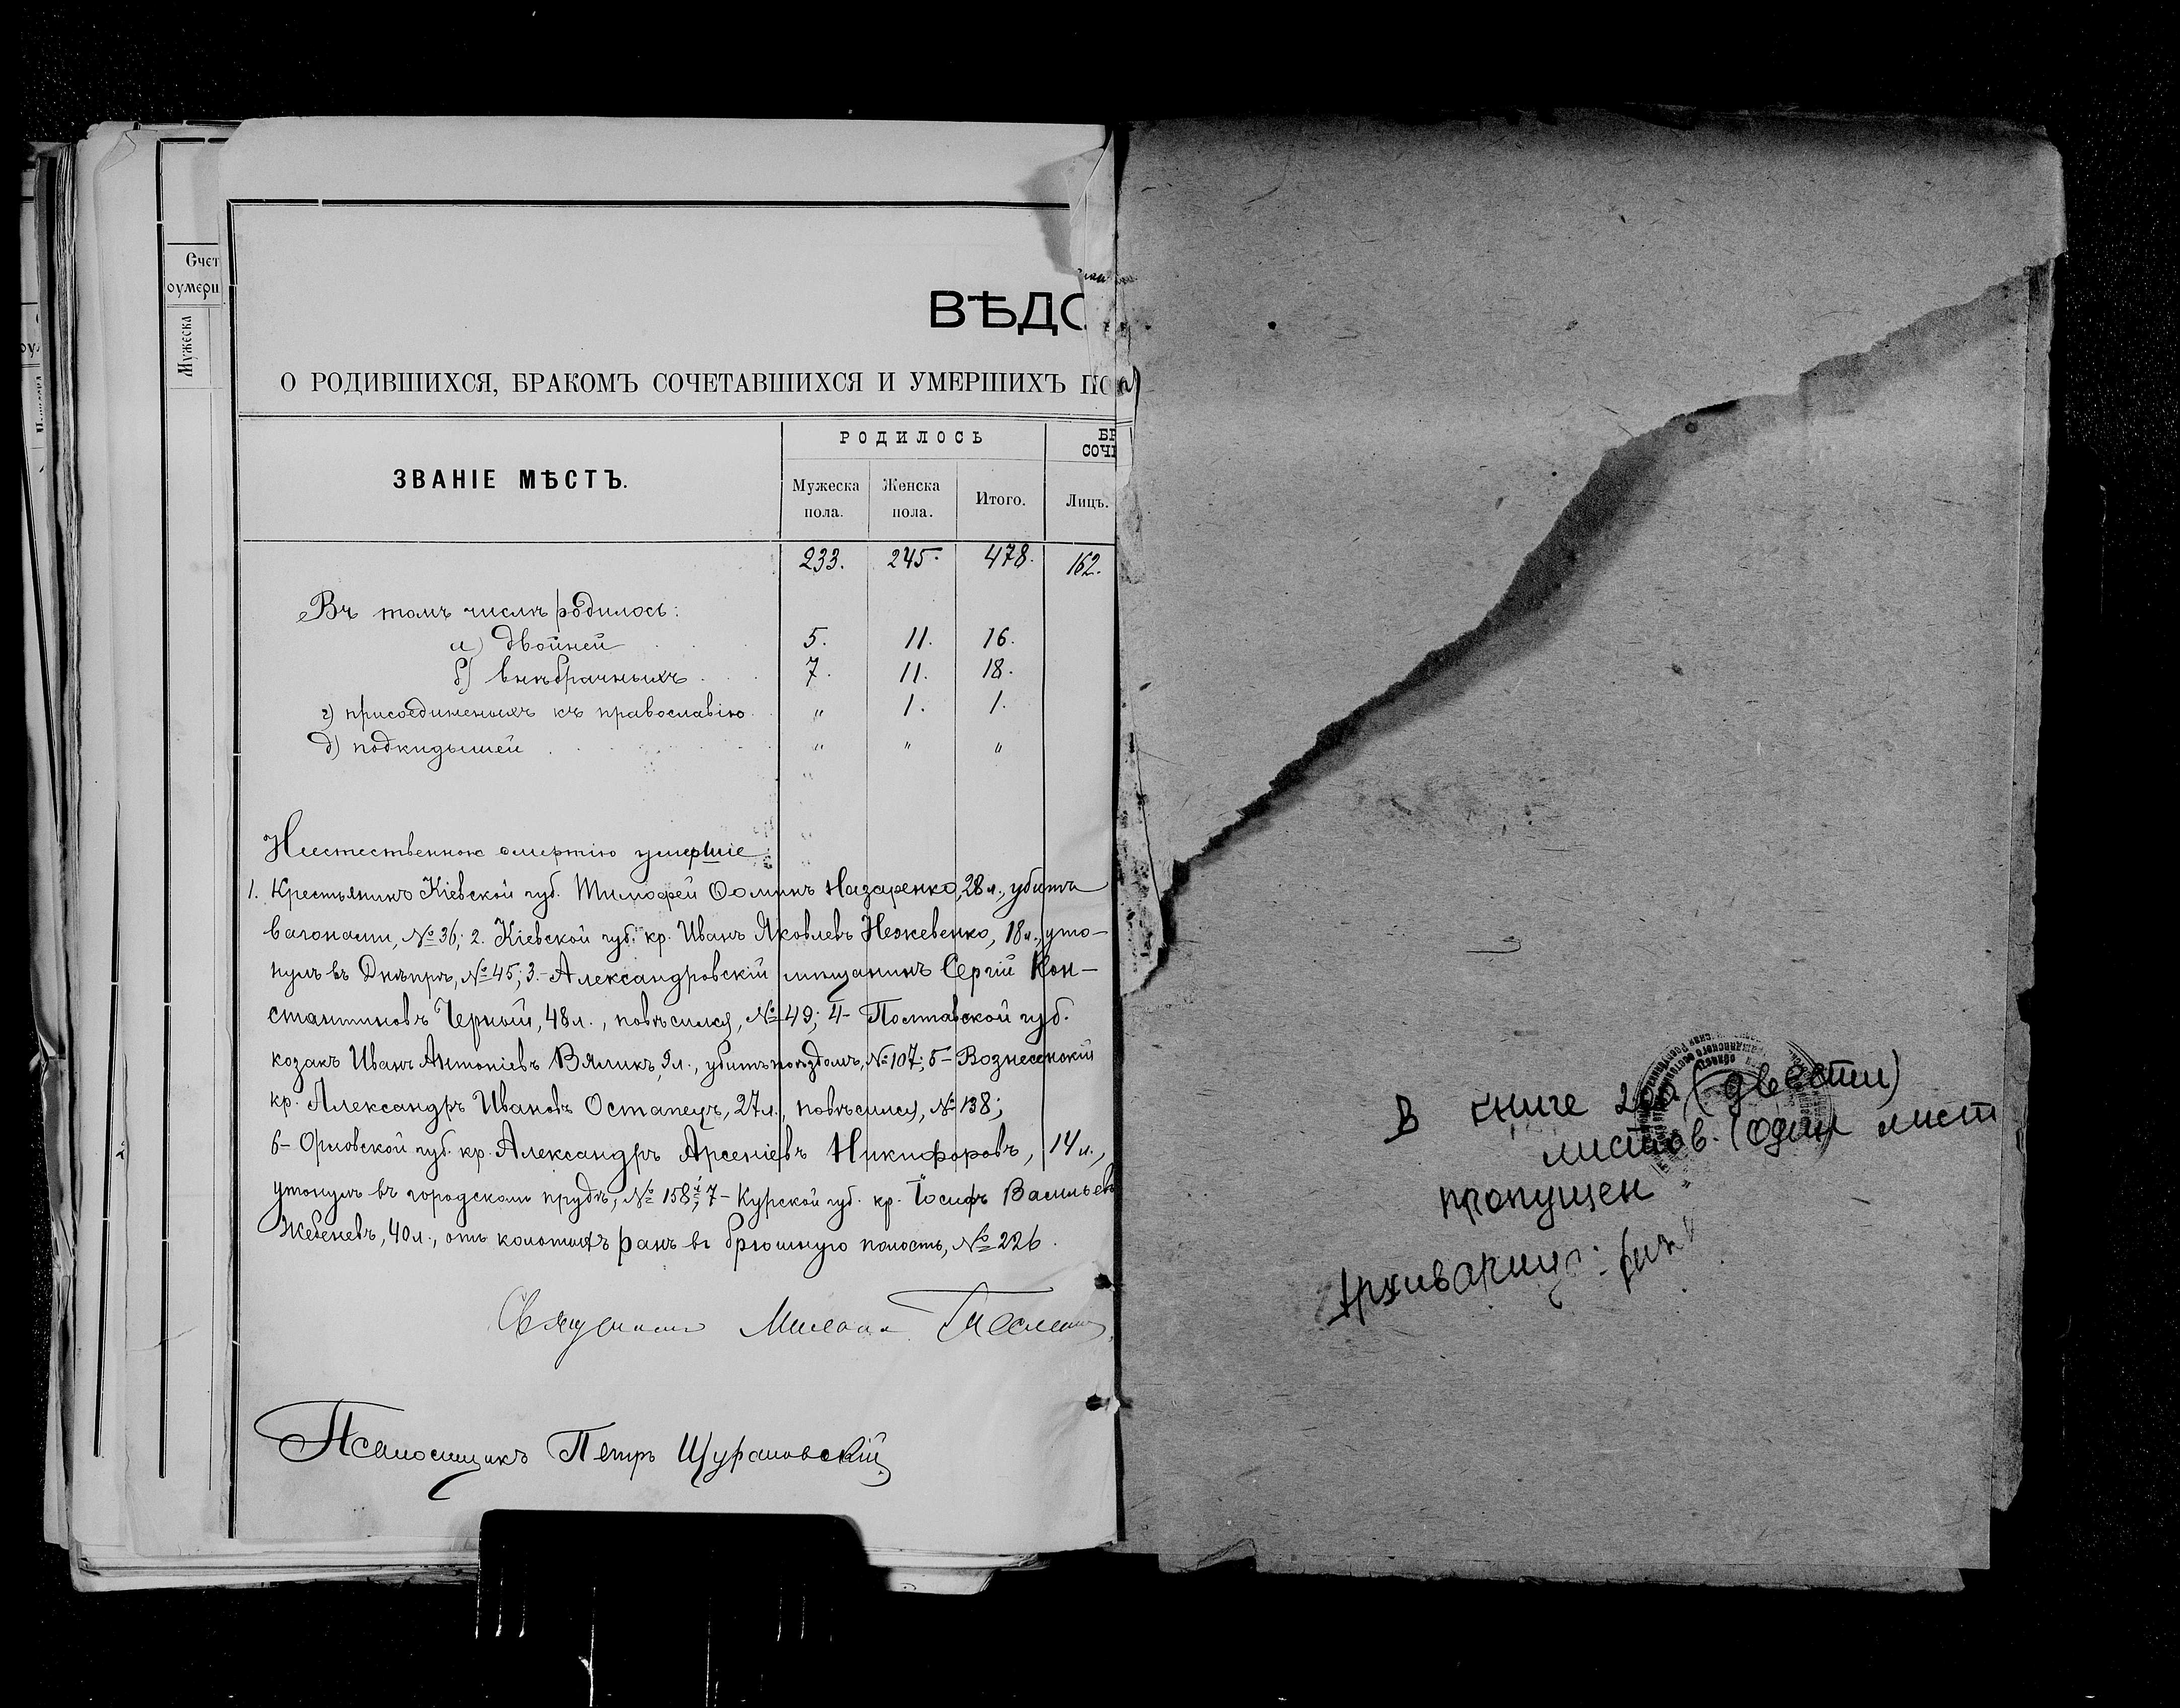 Счет
оумерш
Мужеска
ВѢДО
О РОДИВШИХСЯ, БРАКОМЪ СОЧЕТАВШИХСЯ И УМЕРШИХЪ ПО
ЗВАНІЕ МѢСТЪ.
РОДИЛОСЬ
БР
СОЧЕ
Мужеска пола.
Женска пола.
Итого.
Лицъ.
233. 245. 478. 162.
Въ томъ числѣ родилось:
а) двойней 5. 11. 16.
б) внѣбрачныхъ 7. 11. 18.
г) присоединеныхъ къ православію " 1. 1.
д) подкидышей " " "
Неестественною смертію умершіе:
1. Крестьянинъ Кіевской губ. Тимофей Фоминъ Назаренко, 28 л., убитъ
вагонами, № 36; 2. Кіевской губ. кр. Иванъ Яковлевъ Нежевенко, 18 л., уто-
нулъ въ Днѣпрѣ, № 45; 3.- Александровскій мѣщанинъ Сергій Кон-
стантиновъ Черный, 48 л., повѣсился, № 49; 4- Полтавской губ.
козакъ Иванъ Антоніевъ Вяликъ, 9 л., убитъ поѣздомъ, № 107; 5- Вознесенскій
кр. Александръ Ивановъ Остапецъ, 27 л., повѣсился, № 138;
6- Орловской губ. кр. Александръ Арсеніевъ Никифоровъ, 14 л.,
утонулъ въ городскомъ прудѣ, № 158; 7- Курской губ. кр. Іосифъ Васильевъ
Жебеневъ, 40 л., отъ колотыхъ ранъ въ брюшную полость, № 226.
Священникъ
Псаломщикъ Петръ Щурановскій
В книге 200 (двести)
листов. (один лист
пропущен
Архивариус: